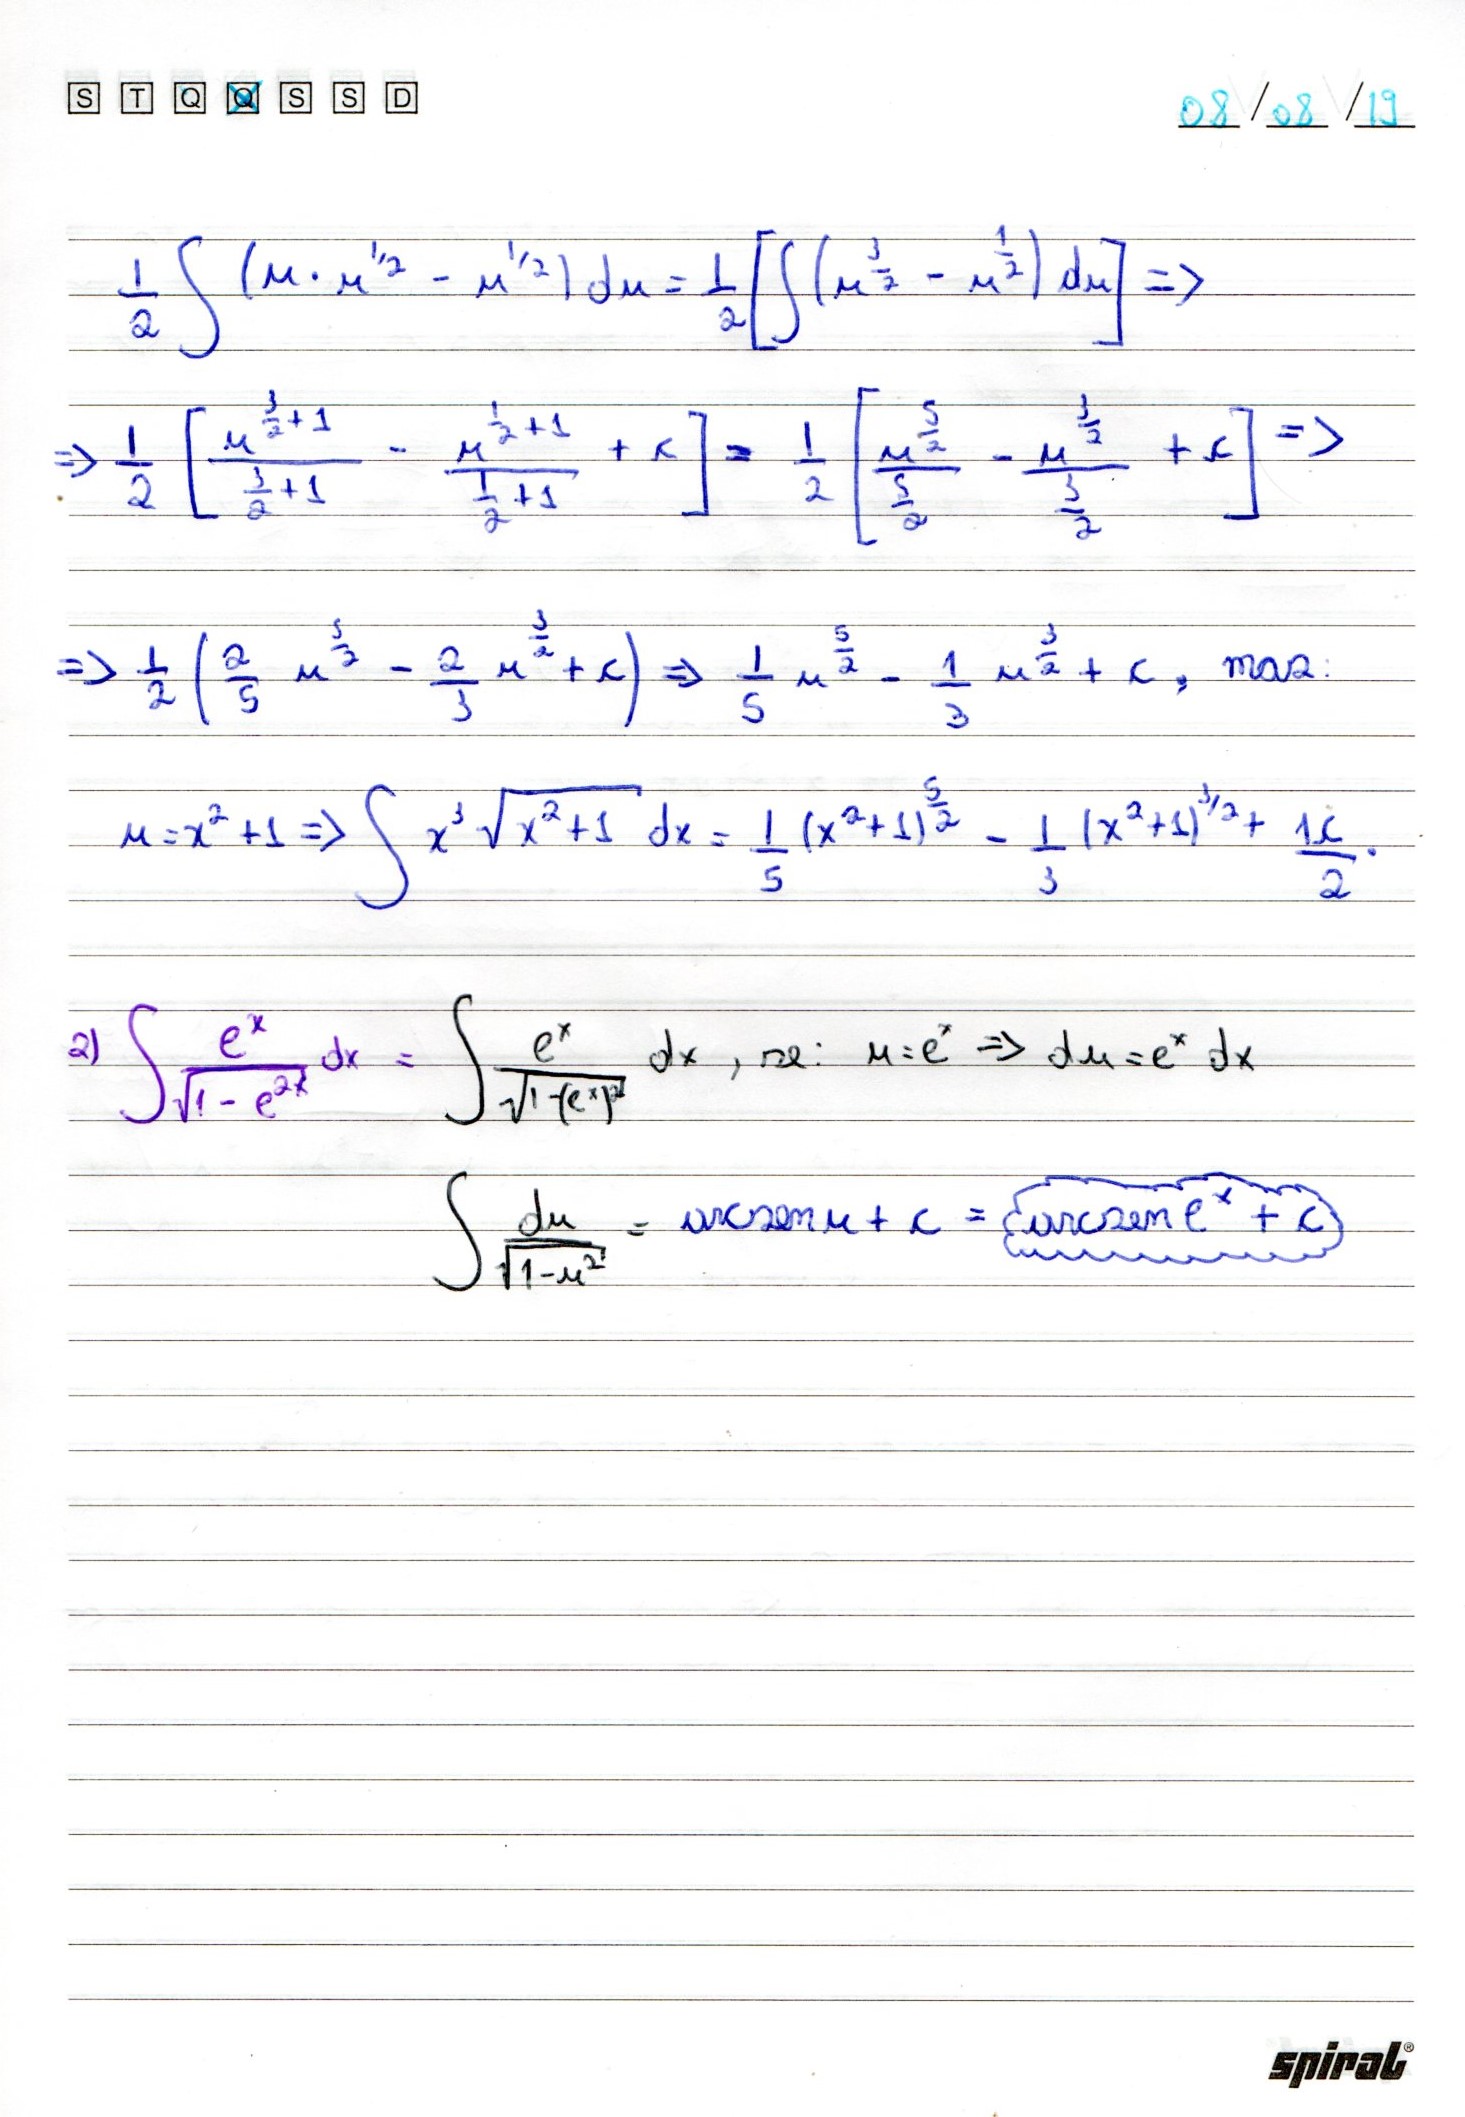 S T Q Q S S D 08/08/19
1/2 ∫ (u · u^1/2 - u^1/2) du = 1/2 [∫ (u^3/2 - u^1/2) du] =>
=> 1/2 [ u^(3/2+1) / (3/2+1) - u^(1/2+1) / (1/2+1) + c ] = 1/2 [ u^5/2 / (5/2) - u^3/2 / (3/2) + c ] =>
=> 1/2 ( 2/5 u^5/2 - 2/3 u^3/2 + c ) => 1/5 u^5/2 - 1/3 u^3/2 + c, mas:
u = x² + 1 => ∫ x³ √(x²+1) dx = 1/5 (x²+1)^5/2 - 1/3 (x²+1)^3/2 + 1c/2 .
2) ∫ e^x / √(1 - e^2x) dx = ∫ e^x / √(1-(e^x)²) dx, se: u = e^x => du = e^x dx
∫ du / √(1-u²) = arcsen u + c = arcsen e^x + c
spiral®